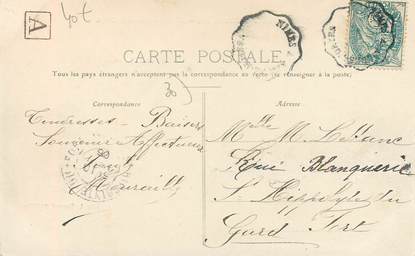 A
40€
NIMES
CARTE POSTALE
Tous les pays étrangers n'acceptent pas la correspondance au verso (se renseigner à la poste)
Correspondance
Adresse
Tendresses - Baisers
Souvenir Affectueux
Melle M. Leblanc
Rue Blanquerie
St Hippolyte du
Fort
Gard